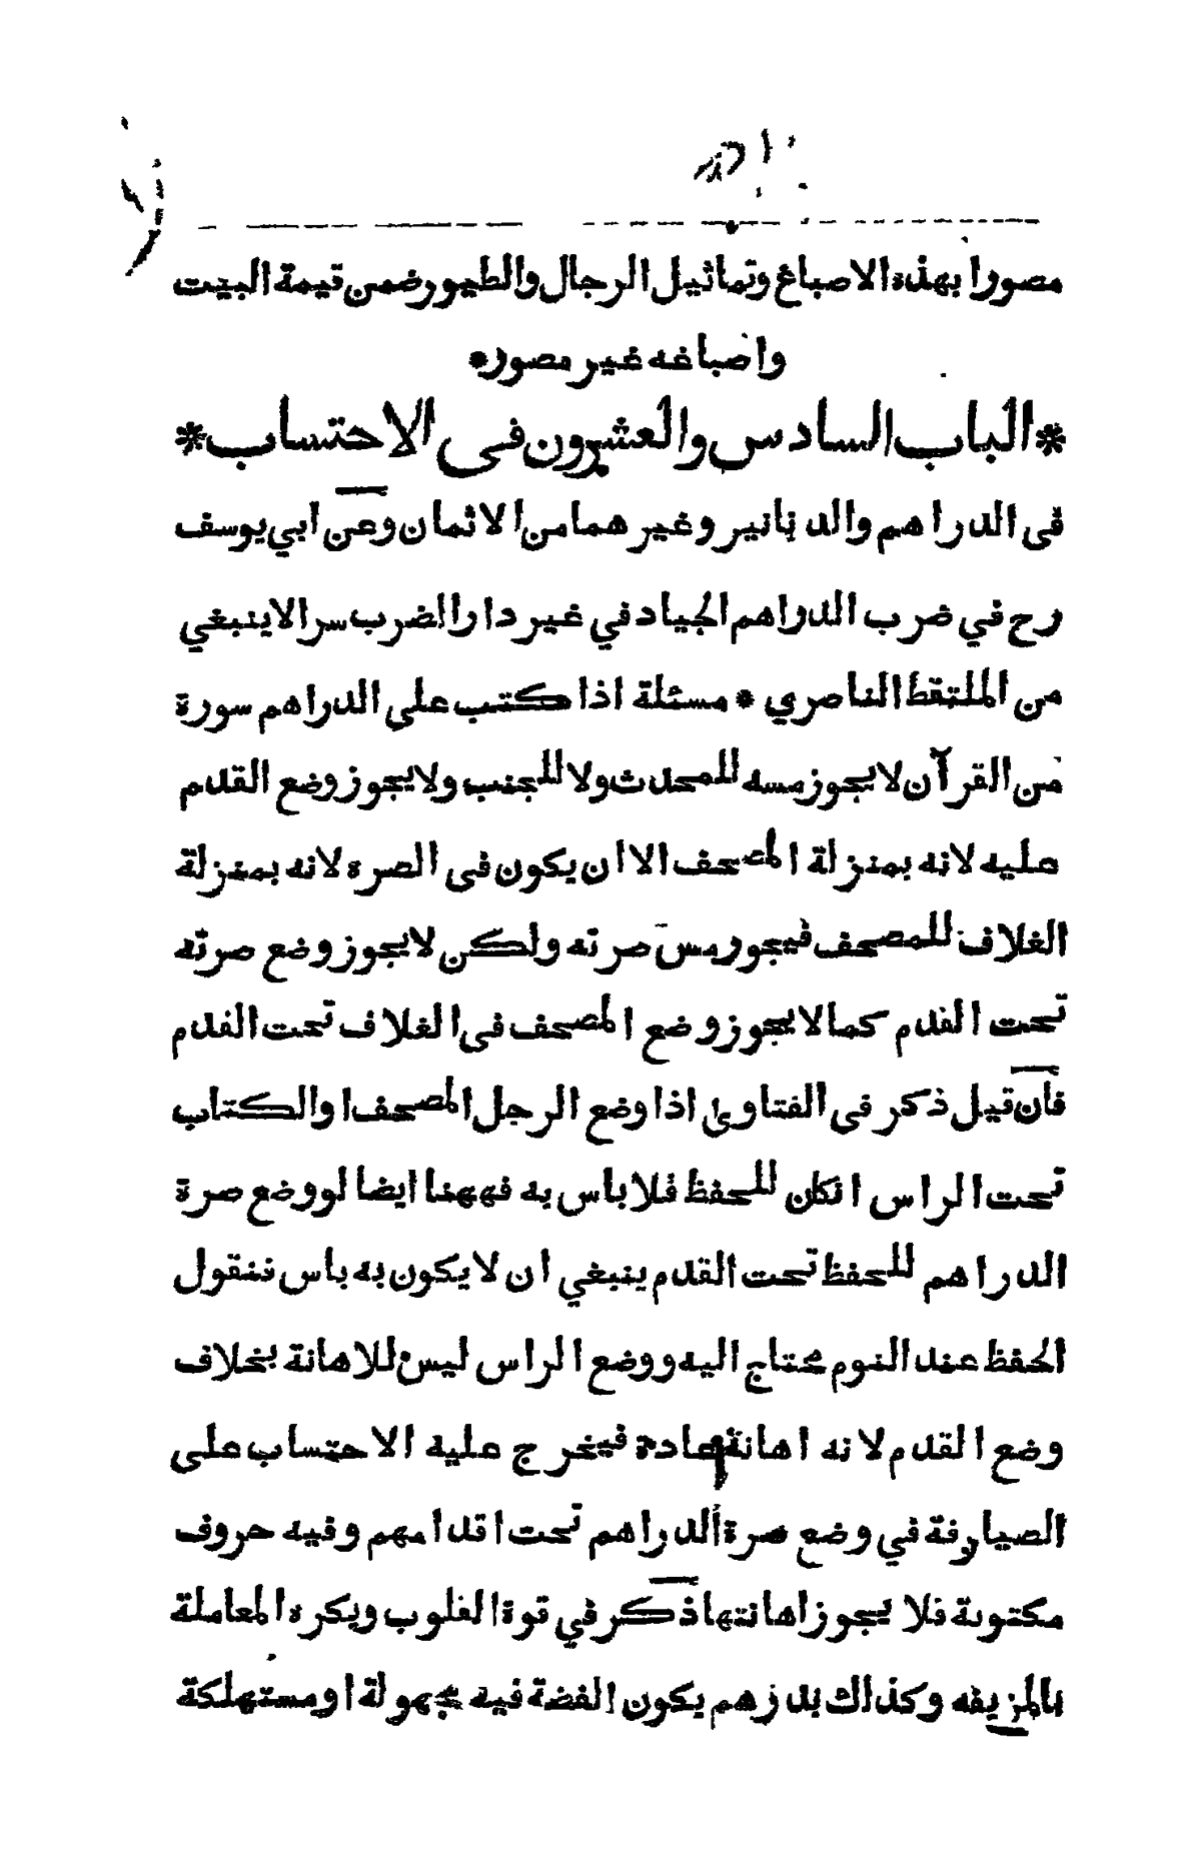 مصورا بهذه الاصباغ وتماثيل الرجال والطيور ضمن قيمة البيت
واصباغه غير مصوره
* الباب السادس والعشرون فى الاحتساب *
فى الدراهم والدنانير وغيرهما من الاثمان وعن ابي يوسف
رح في ضرب الدراهم الجياد في غير دار الضرب سرا لا ينبغي
من الملتقط الناصري * مسئلة اذا كتب على الدراهم سورة
من القرآن لا يجوز مسه للمحدث ولا للجنب ولا يجوز وضع القدم
عليه لانه بمنزلة المصحف الا ان يكون فى الصره لانه بمنزلة
الغلاف للمصحف فيجوز مس صرته ولكن لا يجوز وضع صرته
تحت القدم كما لا يجوز وضع المصحف فى الغلاف تحت القدم
فان قيل ذكر فى الفتاوى اذا وضع الرجل المصحف او الكتاب
تحت الراس انكان للحفظ فلا باس به فههنا ايضا لو وضع صرة
الدراهم للحفظ تحت القدم ينبغي ان لا يكون به باس فنقول
الحفظ عند النوم محتاج اليه ووضع الراس ليس للاهانة بخلاف
وضع القدم لانه اهانة عادة فيخرج عليه الاحتساب على
الصيارفة في وضع صرة الدراهم تحت اقدامهم وفيه حروف
مكتوبة فلا يجوز اهانتها ذكر في قوة القلوب ويكره المعاملة
بالمزيفه وكذلك بدرهم يكون الفضة فيه مجهولة او مستهلكة